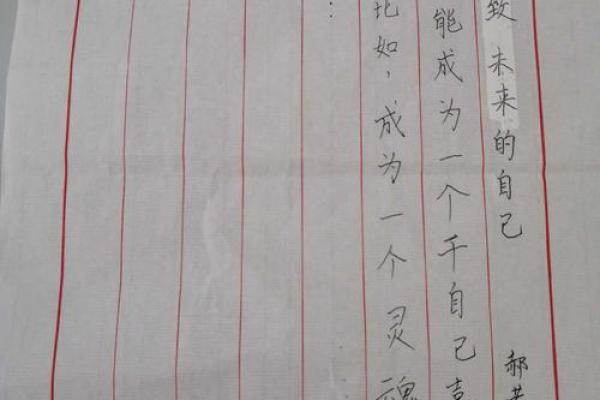 致未来的自己
郝
能成为一个千自己喜
比如，成为一个灵魂
：